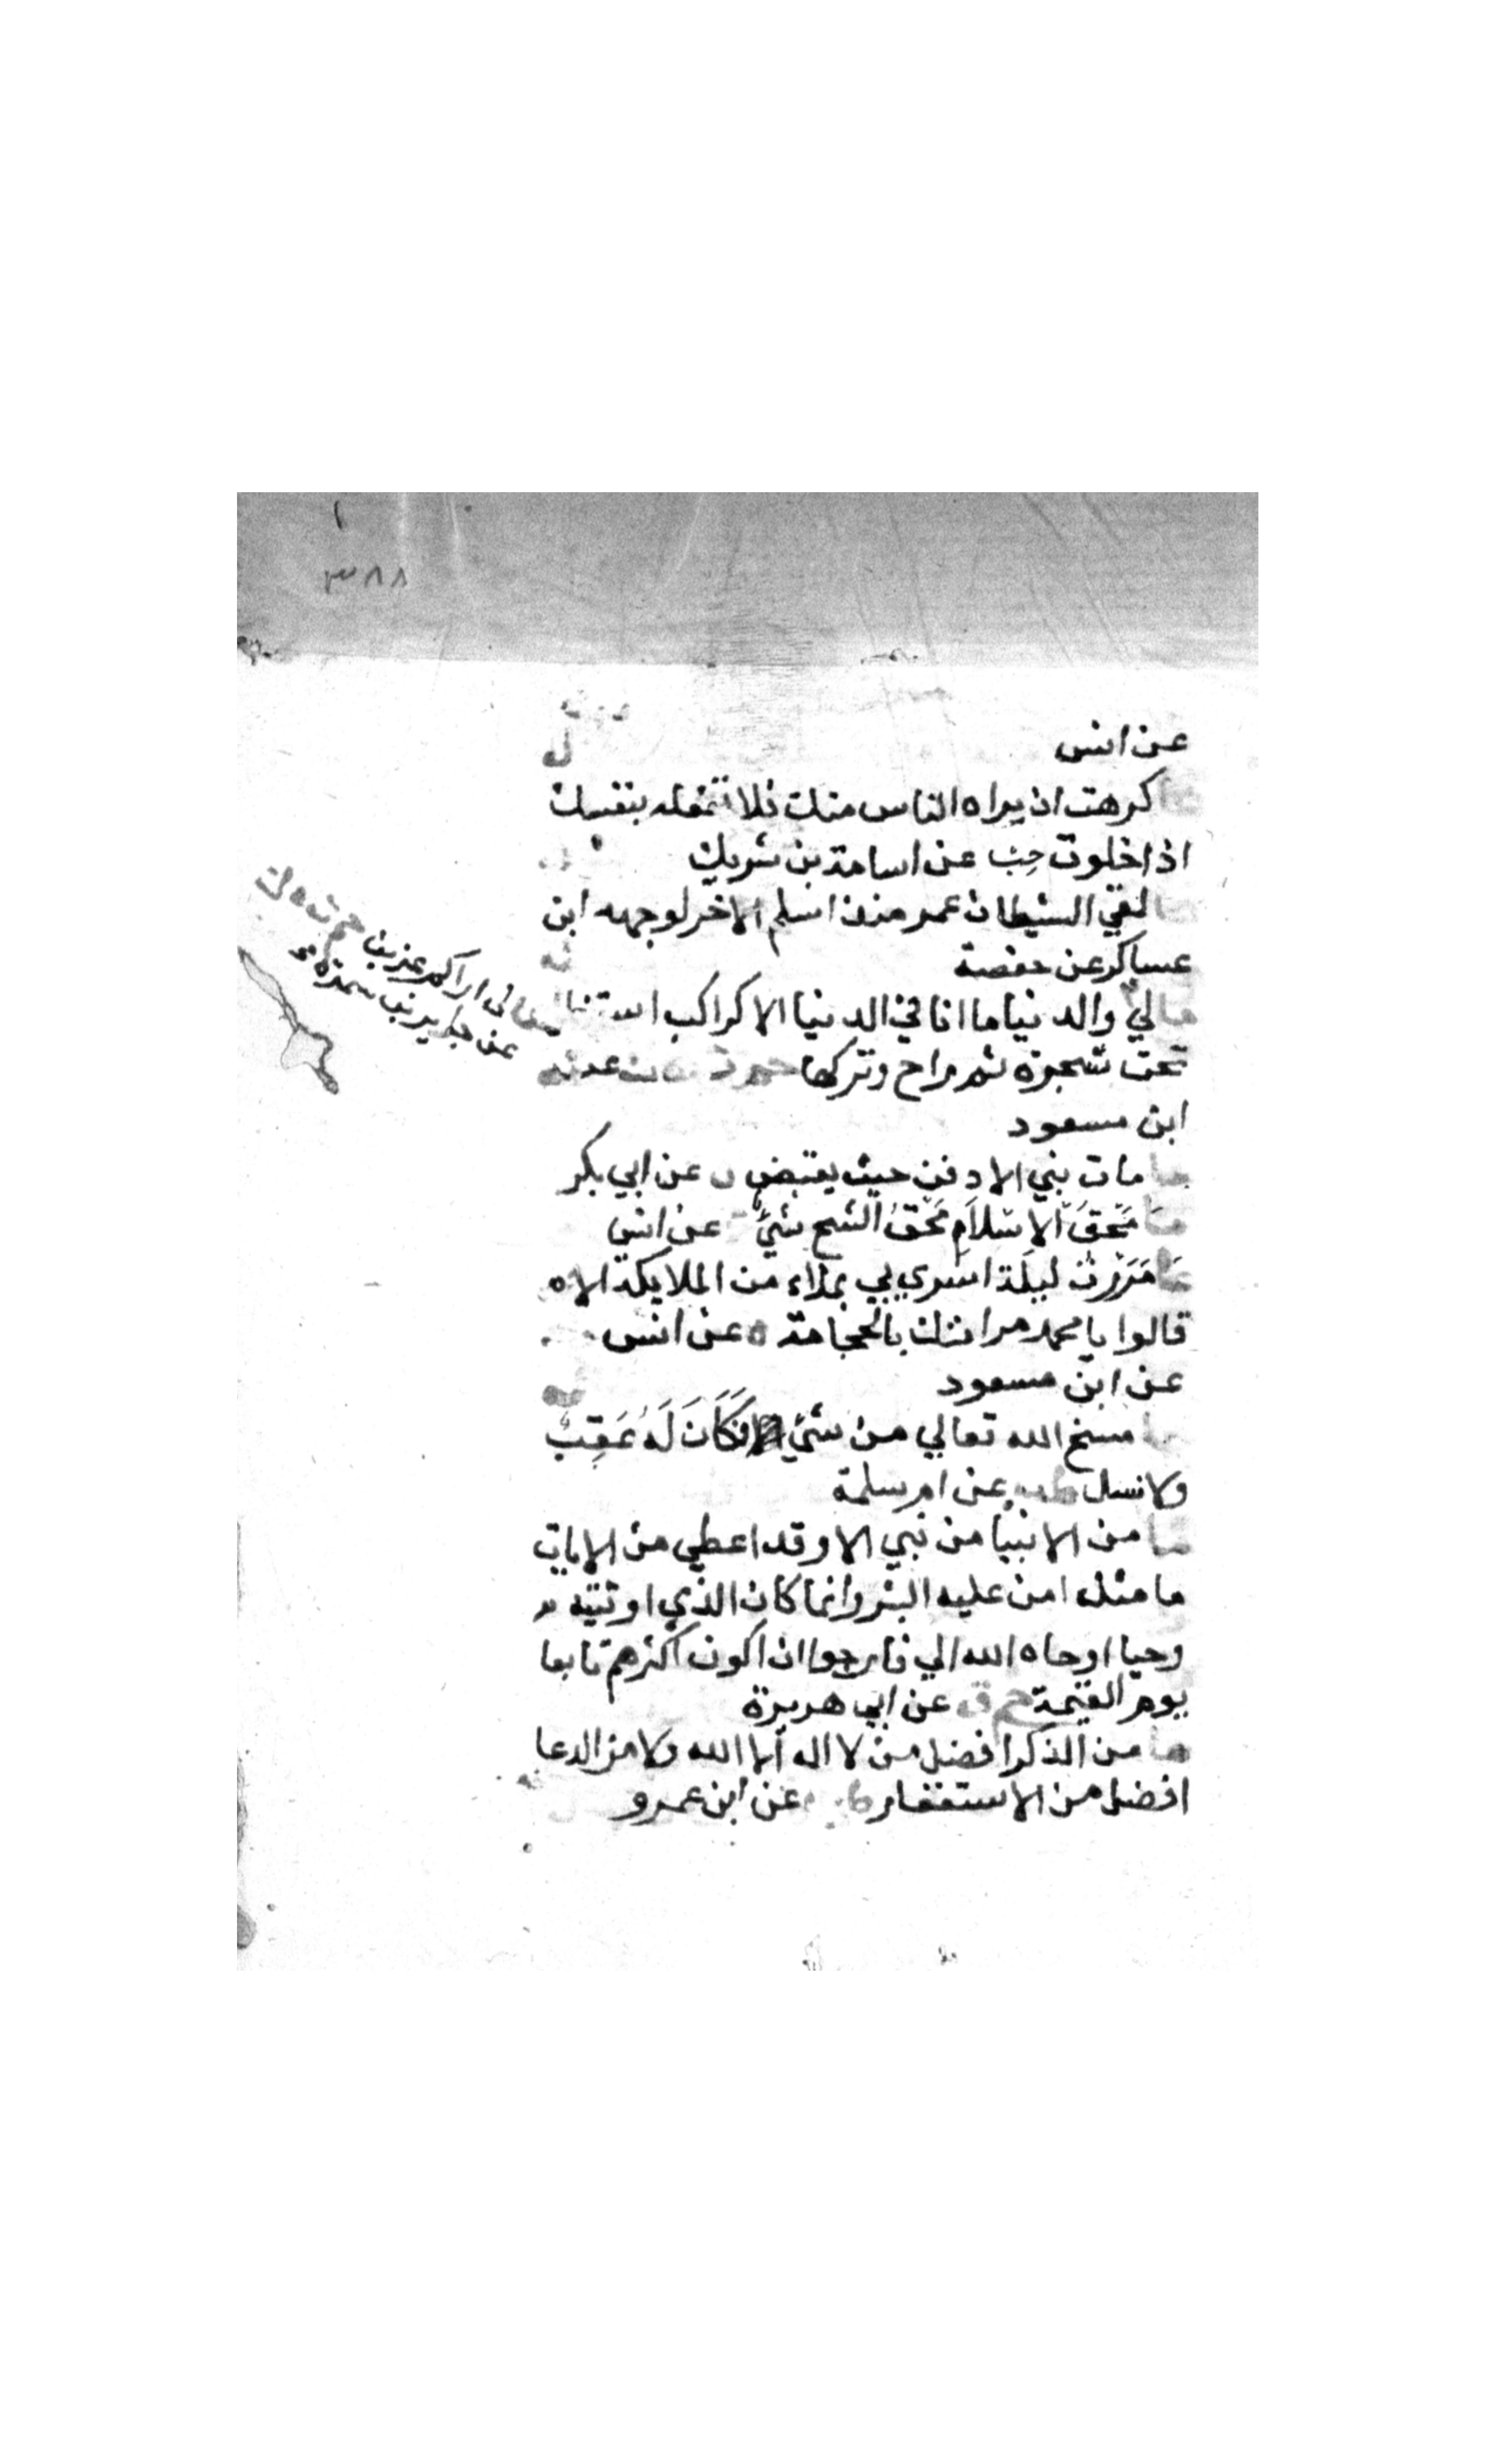 ٣٨٨
عن انس
ما كرهت ان يراه الناس منك فلا تفعله بنفسك
اذا خلوت حب عن اسامة بن شريك
ما لقي الشيطان عمر منذ اسلم الا خر لوجهه ابن
عساكر عن حفصة
مالي اراكم عزين حم م د ن
عن جابر بن سمرة
مالي والدنيا ما انا في الدنيا الا كراكب استظل
تحت شجرة ثم راح وتركها حم ت
ابن مسعود
ما مات نبي الا دفن حيث يقبض عن ابي بكر
مَا مَحَقَ الاِسْلاَمِ مَحْقَ الشح شَيْءٌ عن انس
مَا مَرَرْتُ ليلَة اسري بي بملاء من الملايكة الا
قالوا يا محمد مر امتك بالحجامة ه عن انس
عن ابن مسعود
ما مسخ الله تعالي من شئ فَكَانَ لَهُ عَقِبٌ
ولا نسل طب عن ام سلمة
ما من الانبيا من نبي الا وقد اعطي من الايات
ما مثله امن عليه البشر وانما كان الذي اوتيته
وحيا اوحاه الله الي فارجوا ان اكون اكثرهم تابعا
يوم القيمة حم ق عن ابي هريرة
ما من الذكر افضل من لا اله الا الله ولا من الدعا
افضل من الاستغفار طب عن ابن عمرو